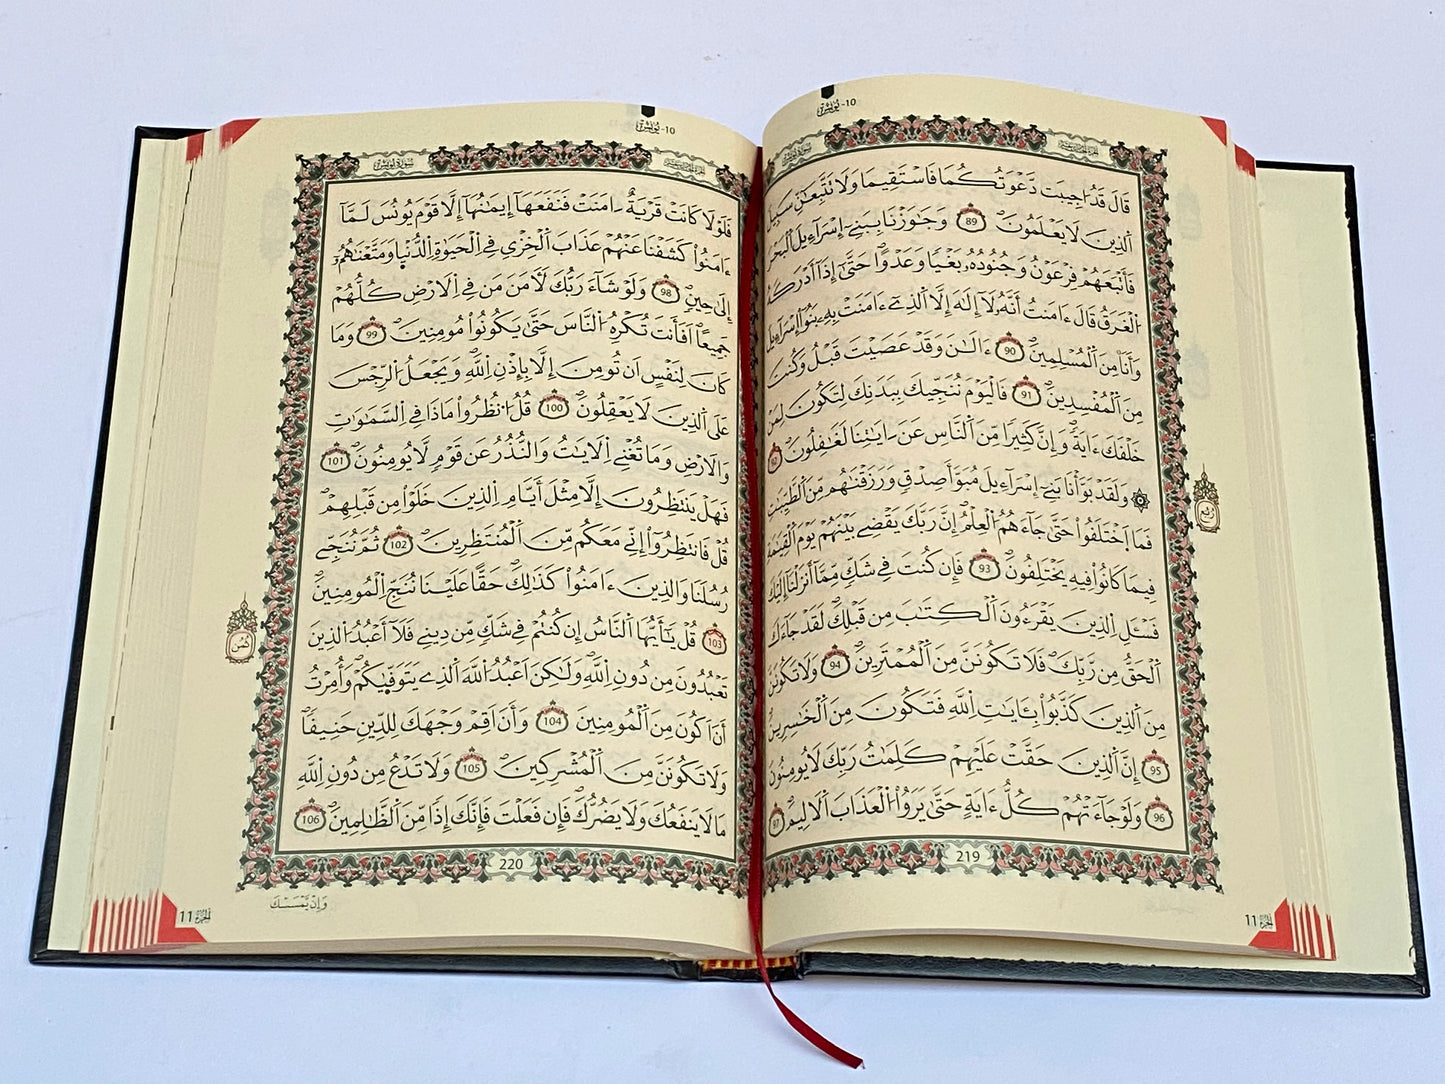 10- يُونُس
سُورَةُ يُونُسَ
قَالَ قَدُ اُجِيبَت دَّعْوَتُكُمَا فَاسْتَقِيمَا وَلَا تَتَّبِعَٰنِّ سَبِيلَ
اَلذِينَ لَا يَعْلَمُونَۖ 89 وَجَٰوَزْنَا بِبَنِےٓ إِسْرَآءِيلَ اَلْبَحْرَ
فَأَتْبَعَهُمْ فِرْعَوْنُ وَجُنُودُهُۥ بَغْيٗا وَعَدْوًا حَتَّىٰٓ إِذَآ أَدْرَكَهُ
اُلْغَرَقُ قَالَ ءَامَنتُ أَنَّهُۥ لَآ إِلَٰهَ إِلَّا اَلذِےٓ ءَامَنَتْ بِهِۦ بَنُوٓاْ إِسْرَآءِيلَ
وَأَنَا مِنَ اَلْمُسْلِمِينَۖ 90 ءَآلَٰنَ وَقَدْ عَصَيْتَ قَبْلُ وَكُنتَ
مِنَ اَلْمُفْسِدِينَۖ 91 فَالْيَوْمَ نُنَجِّيكَ بِبَدَنِكَ لِتَكُونَ لِمَنْ
خَلْفَكَ ءَايَةٗۖ وَإِنَّ كَثِيرٗا مِّنَ اَلنَّاسِ عَنَ ـ ايَٰتِنَا لَغَٰفِلُونَۖ 92
۞ وَلَقَدْ بَوَّأْنَا بَنِےٓ إِسْرَآءِيلَ مُبَوَّأَ صِدْقٖ وَرَزَقْنَٰهُم مِّنَ اَلطَّيِّبَٰتِ
فَمَا اَخْتَلَفُواْ حَتَّىٰ جَآءَهُمُ اُلْعِلْمُۖ إِنَّ رَبَّكَ يَقْضِے بَيْنَهُمْ يَوْمَ اَلْقِيَٰمَةِ
فِيمَا كَانُواْ فِيهِ يَخْتَلِفُونَۖ 93 فَإِن كُنتَ فِے شَكّٖ مِّمَّآ أَنزَلْنَآ إِلَيْكَ
فَسْـَٔلِ اِلذِينَ يَقْرَءُونَ اَلْكِتَٰبَ مِن قَبْلِكَۖ لَقَدْ جَآءَكَ
اَلْحَقُّ مِن رَّبِّكَۖ فَلَا تَكُونَنَّ مِنَ اَلْمُمْتَرِينَۖ 94 وَلَا تَكُونَنَّ
مِنَ اَلذِينَ كَذَّبُواْ بِـَٔايَٰتِ اِللَّهِ فَتَكُونَ مِنَ اَلْخَٰسِرِينَۖ
95 إِنَّ اَلذِينَ حَقَّتْ عَلَيْهِمْ كَلِمَٰتُ رَبِّكَ لَا يُومِنُونَ
96 وَلَوْ جَآءَتْهُمْ كُلُّ ءَايَةٍ حَتَّىٰ يَرَوُاْ اُلْعَذَابَ اَلَالِيمَۖ 97
219
11 الجزء
رُبُع
10- يُونُس
سُورَةُ يُونُسَ
فَلَوْلَا كَانَتْ قَرْيَةٌ ـ امَنَتْ فَنَفَعَهَآ إِيمَٰنُهَآ إِلَّا قَوْمَ يُونُسَ لَمَّآ
ءَامَنُواْ كَشَفْنَا عَنْهُمْ عَذَابَ اَلْخِزْيِ فِے اِلْحَيَوٰةِ اِلدُّنْيَا وَمَتَّعْنَٰهُمُۥٓ
إِلَىٰ حِينٖۖ 98 وَلَوْ شَآءَ رَبُّكَ لَأٓمَنَ مَن فِے اِلَارْضِ كُلُّهُمْ
جَمِيعًاۖ اَفَأَنتَ تُكْرِهُ اُلنَّاسَ حَتَّىٰ يَكُونُواْ مُومِنِينَۖ 99 وَمَا
كَانَ لِنَفْسٍ اَن تُومِنَ إِلَّا بِإِذْنِ اِللَّهِۖ وَيَجْعَلُ اُلرِّجْسَ
عَلَى اَلذِينَ لَا يَعْقِلُونَۖ 100 قُلُ اُنظُرُواْ مَاذَا فِے اِلسَّمَٰوَٰتِ
وَالَارْضِ وَمَا تُغْنِے اِلَايَٰتُ وَالنُّذُرُ عَن قَوْمٖ لَّا يُومِنُونَۖ 101
فَهَلْ يَنتَظِرُونَ إِلَّا مِثْلَ أَيَّامِ اِلذِينَ خَلَوْاْ مِن قَبْلِهِمْۖ
قُلْ فَانتَظِرُوٓاْ إِنِّے مَعَكُم مِّنَ اَلْمُنتَظِرِينَۖ 102 ثُمَّ نُنَجِّے
رُسُلَنَا وَالذِينَ ءَامَنُواْ كَذَٰلِكَۖ حَقّاً عَلَيْنَا نُنَجِّ اِلْمُومِنِينَۖ
103 قُلْ يَٰٓأَيُّهَا اَلنَّاسُ إِن كُنتُمْ فِے شَكّٖ مِّن دِينِے فَلَآ أَعْبُدُ اُلذِينَ
تَعْبُدُونَ مِن دُونِ اِللَّهِ وَلَٰكِنَ اَعْبُدُ اُللَّهَ اَلذِے يَتَوَفَّىٰكُمْۖ وَأُمِرْتُ
أَنَ اَكُونَ مِنَ اَلْمُومِنِينَ 104 وَأَنَ اَقِمْ وَجْهَكَ لِلدِّينِ حَنِيفٗاۖ
وَلَا تَكُونَنَّ مِنَ اَلْمُشْرِكِينَۖ 105 وَلَا تَدْعُ مِن دُونِ اِللَّهِ
مَا لَا يَنفَعُكَ وَلَا يَضُرُّكَۖ فَإِن فَعَلْتَ فَإِنَّكَ إِذٗا مِّنَ اَلظَّٰلِمِينَۖ 106
220
وَإِنْ يَّمْسَسْكَ
11 الجزء
ثُمُن